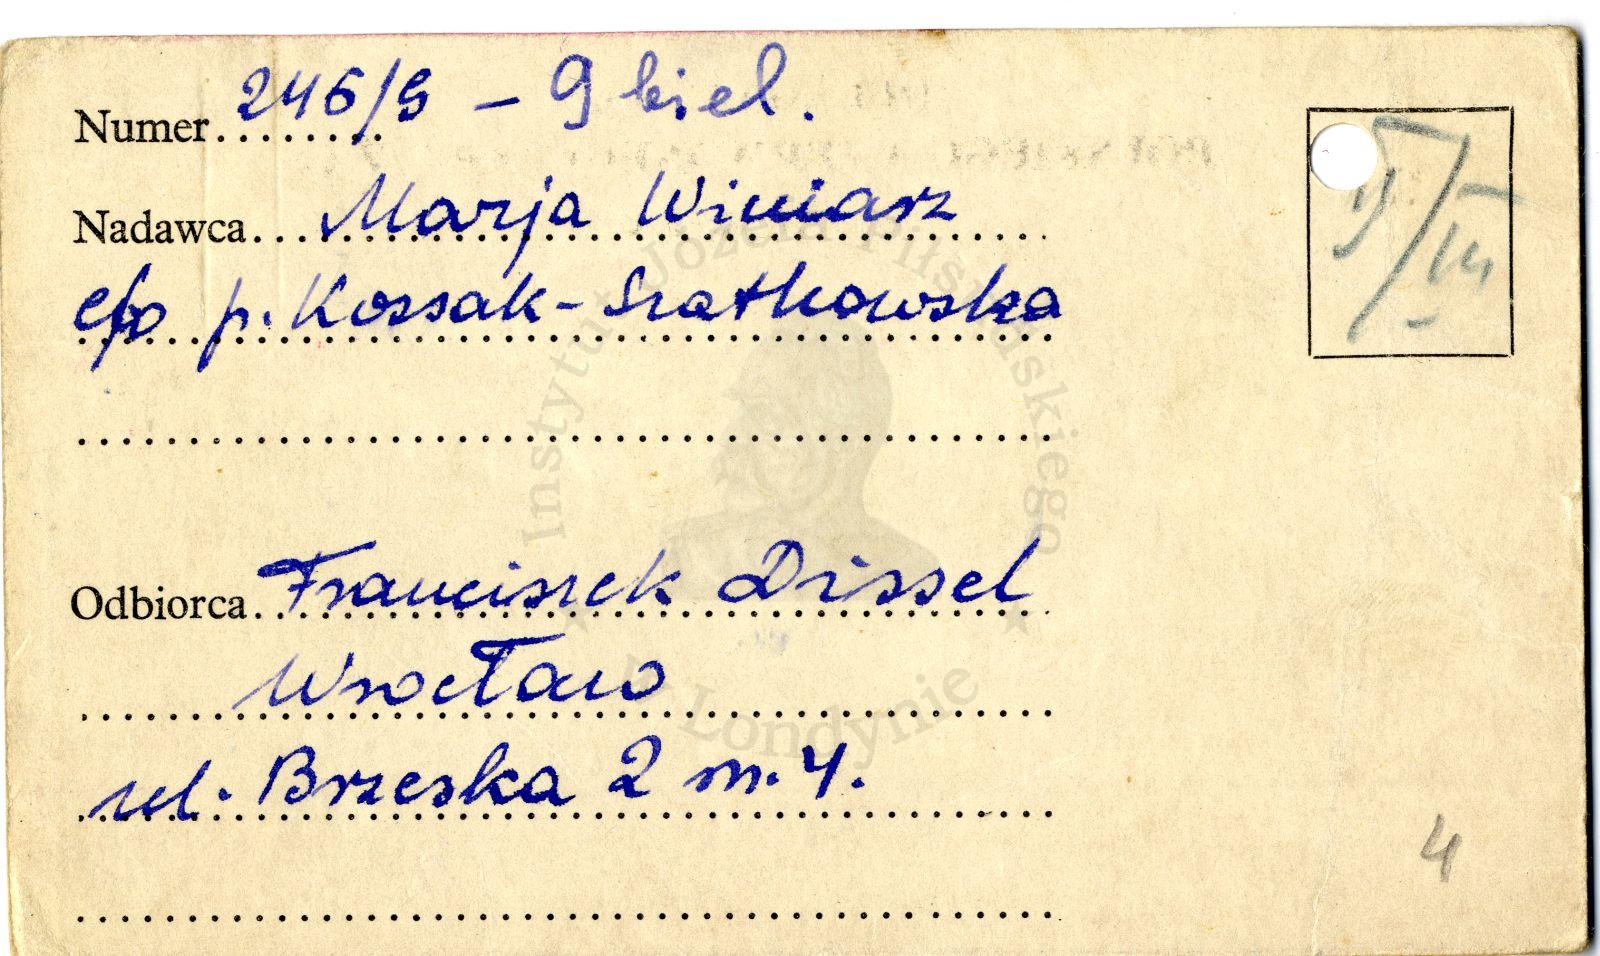 Numer 246/9 - 9 biel.
Nadawca Marja Winiarz
c/o p. Kossak-Szatkowska
Odbiorca Franciszek Dissel
Wrocław
ul. Brzeska 2 m. 4.
4
Instytut Józefa Piłsudskiego
w Londynie